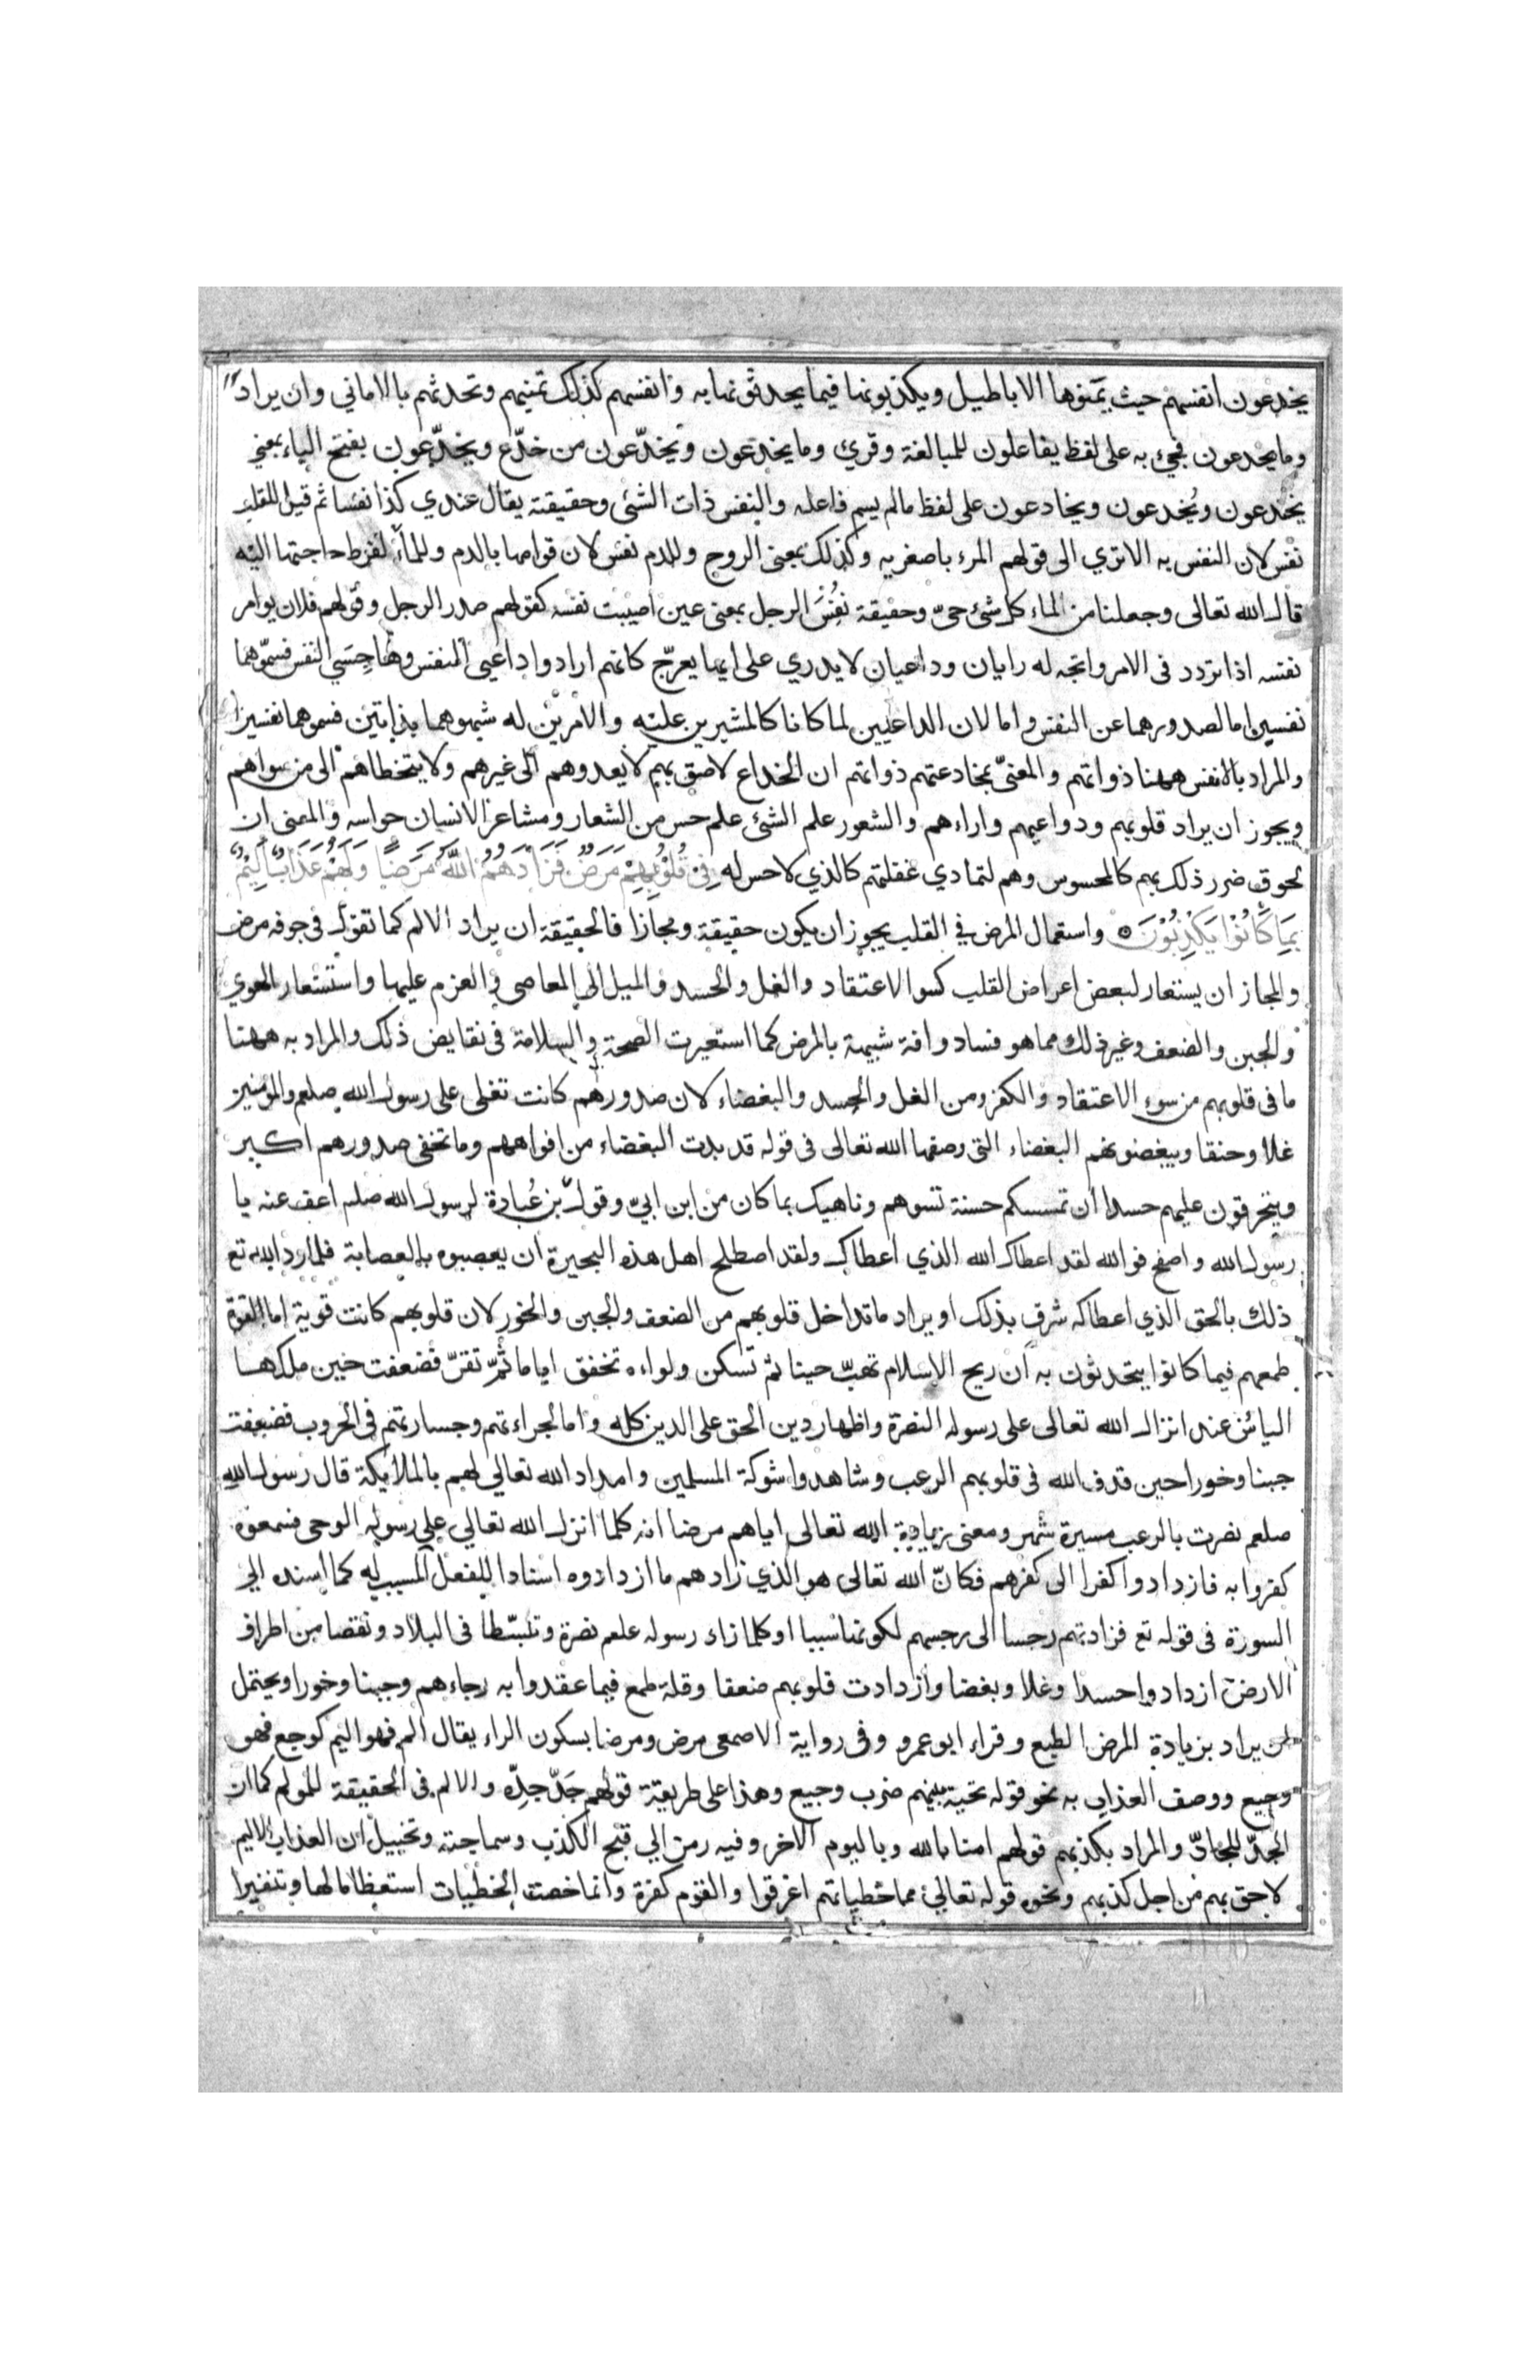 يخدعون انفسهم حيث يمنونها الاباطيل ويكذبونها فيما يحدثونها به وانفسهم كذلك تمنيهم وتحدثهم بالاماني وان يراد
وما يخدعون فجئ به على لفظ يفاعلون للمبالغة وقرئ وما يخدعون ويخدّعون من خدّع ويخدّعون بفتح الياء بمعنى
يختدعون ويُخدعون ويخادعون على لفظ مالم يسم فاعله والنفس ذات الشئ وحقيقته يقال عندي كذا نفسا ثم قيل للقلب
نفس لان النفس به الاتري الى قولهم المرء باصغريه وكذلك بمعنى الروح وللدم نفس لان قوامها بالدم وللماء لفرط حاجتها اليه
قال الله تعالى وجعلنا من الماء كل شئ حىّ وحقيقة نفس الرجل بمعنى عين اصيبت نفسه كقولهم صدر الرجل وقولهم فلان يوامر
نفسه اذا تردد فى الامر واتجه له رايان وداعيان لا يدري على ايها يعرّج كانهم ارادوا داعيى النفس وهاجسَي النفس فسمّوهما
نفسين اما لصدورهما عن النفس واما لان الداعيين لما كانا كالمشيرين عليه والامرين له شبهوهما بذاتين فسموهما نفسين
والمراد بالانفس ههنا ذواتهم والمعنىّ بمخادعتهم ذواتهم ان الخداع لاصق بهم لا يعدوهم الى غيرهم ولا يتخطاهم الى من سواهم
ويجوز ان يراد قلوبهم ودواعيهم واراءهم والشعور علم الشئ علم حس من الشعار ومشاعر الانسان حواسه والمعنى ان
لحوق ضرر ذلك بهم كالمحسوس وهم لتمادي غفلتهم كالذي لا حس له فِى قُلُوْبِهِمْ مَرَضٌ فَزَادَهُمُ اللّٰهُ مَرَضًا وَلَهُمْ عَذَابٌ اَلِيْمٌ
بِمَا كَانُوْا يَكْذِبُوْنَ واستعمال المرض في القلب يجوز ان يكون حقيقة ومجازا فالحقيقة ان يراد الالم كما تقول فى جوفه مرض
والمجاز ان يستعار لبعض اعراض القلب كسوالاعتقاد والغل والحسد والميل الى المعاصى والعزم عليها واستشعار الهوي
والجبن والضعف وغير ذلك مما هو فساد وافة شبيهة بالمرض كما استعيرت الصحة والسلامة فى نقايض ذلك والمراد به ههنا
ما فى قلوبهم من سوء الاعتقاد والكفر ومن الغل والحسد والبغضاء لان صدورهم كانت تغلى على رسول الله صلعم والمؤمنين
غلا وحنقا ويبغضونهم البغضاء التى وصفها الله تعالى فى قوله قد بدت البغضاء من افواههم وما تخفى صدورهم اكبر
ويتحرقون عليهم حسدا ان تمسسكم حسنة تسوهم وناهيك بما كان من ابن ابيّ وقول بن عُبادة لرسول الله صلم اعف عنه يا
رسول الله واصفح فوالله لقد اعطاك الله الذي اعطاك ولقد اصطلح اهل هذه البحيرة ان يعصبوه بالعصابة فلما رد الله تع
ذلك بالحق الذي اعطاكه شرق بذلك او يراد ما تداخل قلوبهم من الضعف والجبن والخور لان قلوبهم كانت قوية اما لقوة
طمعهم فيما كانوا يتحدثون به ان ريح الاسلام تهبّ حينا ثم تسكن ولواءه تخفق اياما ثمّ تقرّ فضعفت حين ملكها
اليائس عند انزال الله تعالى على رسوله النصرة واظهار دين الحق على الدين كله واما لجراءتهم وجسارتهم فى الحروب فضعفت
جبنا وخورا حين قذف الله فى قلوبهم الرعب وشاهدوا شوكة المسلمين وامداد الله تعالي لهم بالملايكة قال رسول الله
صلعم نصرت بالرعب مسيرة شهر ومعنى زيادة الله تعالى اياهم مرضا انه كلما انزل الله تعالي علي رسوله الوحى فسمعوه
كفروا به فازدادوا كفرا الى كفرهم فكانّ الله تعالى هو الذي زادهم ما ازدادوه اسنادا للفعل المسبب له كما اسنده الي
السورة فى قوله تع فزادتهم رجسا الى رجسهم لكونها سببا او كلما زاد رسوله علعم نصرة وتبسّطا فى البلاد ونقصا من اطراف
الارض ازدادوا حسدا وغلا وبغضا وازدادت قلوبهم ضعفا وقلة طمع فيما عقدوا به رجاءهم وجبنا وخورا ويحتمل
ان يراد بزيادة المرض الطبع وقراء ابو عمرو وفى رواية الاصمعى مرض ومرضا بسكون الراء يقال الم فهو اليم كوجع فهو
وجيع ووصف العذاب به نحو قوله تحية بينهم ضرب وجيع وهذا على طريقة قولهم جَدّ جدّه والالم فى الحقيقة للمولم كما ان
الجدّ للجادّ والمراد بكذبهم قولهم امنا بالله وباليوم الاخر وفيه رمز الي قبح الكذب وسماجته وتخييل ان العذاب الاليم
لاحق بهم من اجل كذبهم ونحوه قوله تعالي مما خطياتهم اغرقوا والقوم كفرة وانما خصت الخطيات استعظاما لها وتنفيرا